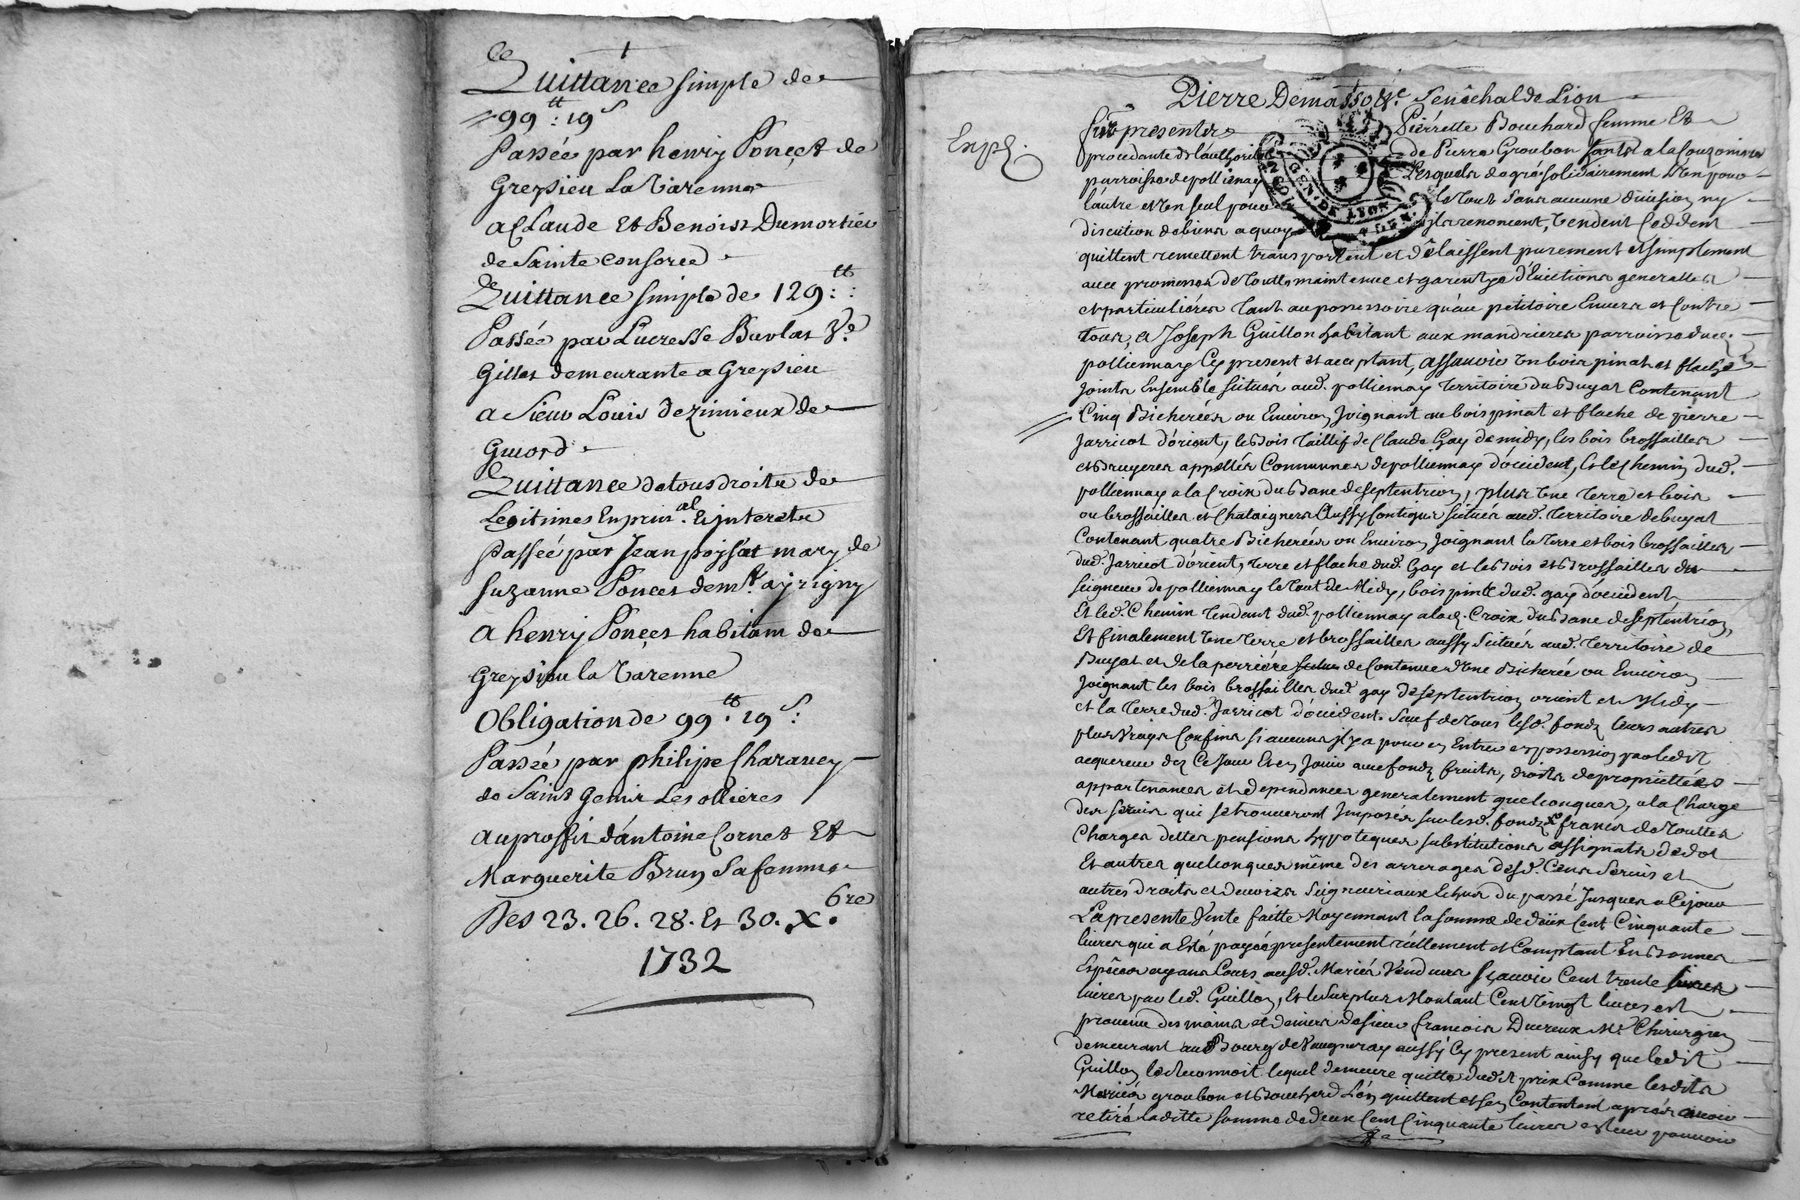 Quittance simple de
99 tt: 19 s
Passée par henry Ponçet de
Greysieu La Varenne
a Claude Et Benoist Dumortier
de Sainte Consorce
Quittance simple de 129 tt:
Passée par Lucresse Barlas Ve
Gillet demeurante a Greysieu
a Sieur Louis Dezimieux de
Quittance de tous droits de
Legitimes En prin.al Et interets
passée par Jean poysat mary de
Suzanne Ponçet dem.t a yrigny
a henry Ponçet habitant de
Greysieu la Varenne
Obligation de 99 tt: 19 s:
Passée par philipe Charavey
de Saint Genis Les ollieres
au proffit d'antoine Cornet Et
Marguerite Brun Sa femme
Des 23. 26. 28. Et 30. Xbre
1732
Pierre Demasso Sr. Senêchal de Lion
furent presents Pierrette Bouchard femme Et
procedante de l'authorité de Pierre Groubon
parroisse de pollienay Lesquels de gré solidairement L'un pour
l'autre et un seul pour le tout sans aucune division ny
discution de biens a quoy ils renoncent, Vendent Ceddent
quittent remettent transportent et délaissent purement et simplement
avec promesses de toutte maintenue et garentye d'Evictions generalles
et particulières Tant au possessoire qu'au petitoire Envers et Contre
tous, a Joseph Guillon habitant aux mandrieres parroisse dud.
pollienay Cy present et acceptant, assavoir Un bois pinat et flache
joints Ensemble situés aud. pollienay territoire du Buyat Contenant
Cinq Bicherées ou Environ Joignant au bois pinat et flache de pierre
Jarricot d'orient, le bois Taillif de Claude Gay de midy, les bois brossailles
et bruyeres appellés Communes de pollienay d'occident, Et le chemin dud.
pollienay a la Croix du Bane de septentrion, plus Une Terre et bois
ou brossailles et Chataigners Aussy Contigus situés aud. territoire de buyat
Contenant quatre Bicherées ou Environ Joignant la Terre et bois brossailles
dud. Jarricot d'orient, terre et flache dud. Gay et les bois et Brossailles du
Seigneur de pollienay le tout de Midy, bois pinte dud. gay d'occident
Et led. Chemin tendant dud. pollienay a lad. Croix du Bane de septentrion,
Et finalement Une Terre et brossailles aussy situés aud. territoire de
Buyat et de la perriére de Contenue d'Une Bicherée ou Environ
Joignant les bois brossailles dud. gay de septentrion orient et Midy
et la terre dud. Jarricot d'occident. Sauf de tous lesd. fonds leurs autres
plus Vrays Confins si aucuns il y a pour en Entrer en possession par ledit
acquereur dez Ce jour Et en Jouir avec fonds fruits, droits de proprietés
appartenances et dependances generalement quelconques, a la Charge
des servis qui se trouveront Imposés sur lesd. fonds francs de touttes
Charges dettes pensions hypoteques substitutions assignats de dot
Et autres quelconques même des arrerages desd. Cens Servis et
autres droits et devoirs Seigneuriaux Echus du passé Jusques a Cejour
La presente Vente faitte Moyennant la somme de deux Cent Cinquante
livres qui a Esté payée presentement réellement et Comptant En bonnes
Espèces ayans Cours ausd. Mariés Vendeurs sçavoir Cent trente
livres par led. Guillon, Et le surplus Montant Cent Vingt livres est
provenu des mains et deniers de sieur francois Ducreux Me Chirurgien
demeurant au Bourg de Vaugneray aussy Cy present ainsy que ledit
Guillon le Reconnoit lequel demeure quitte dudit prix Comme lesdits
Mariés groubon et Bouchard L'en quittent et s'en Contentent aprés avoir
retiré laditte somme de deux Cent Cinquante livres et leur pouvoir